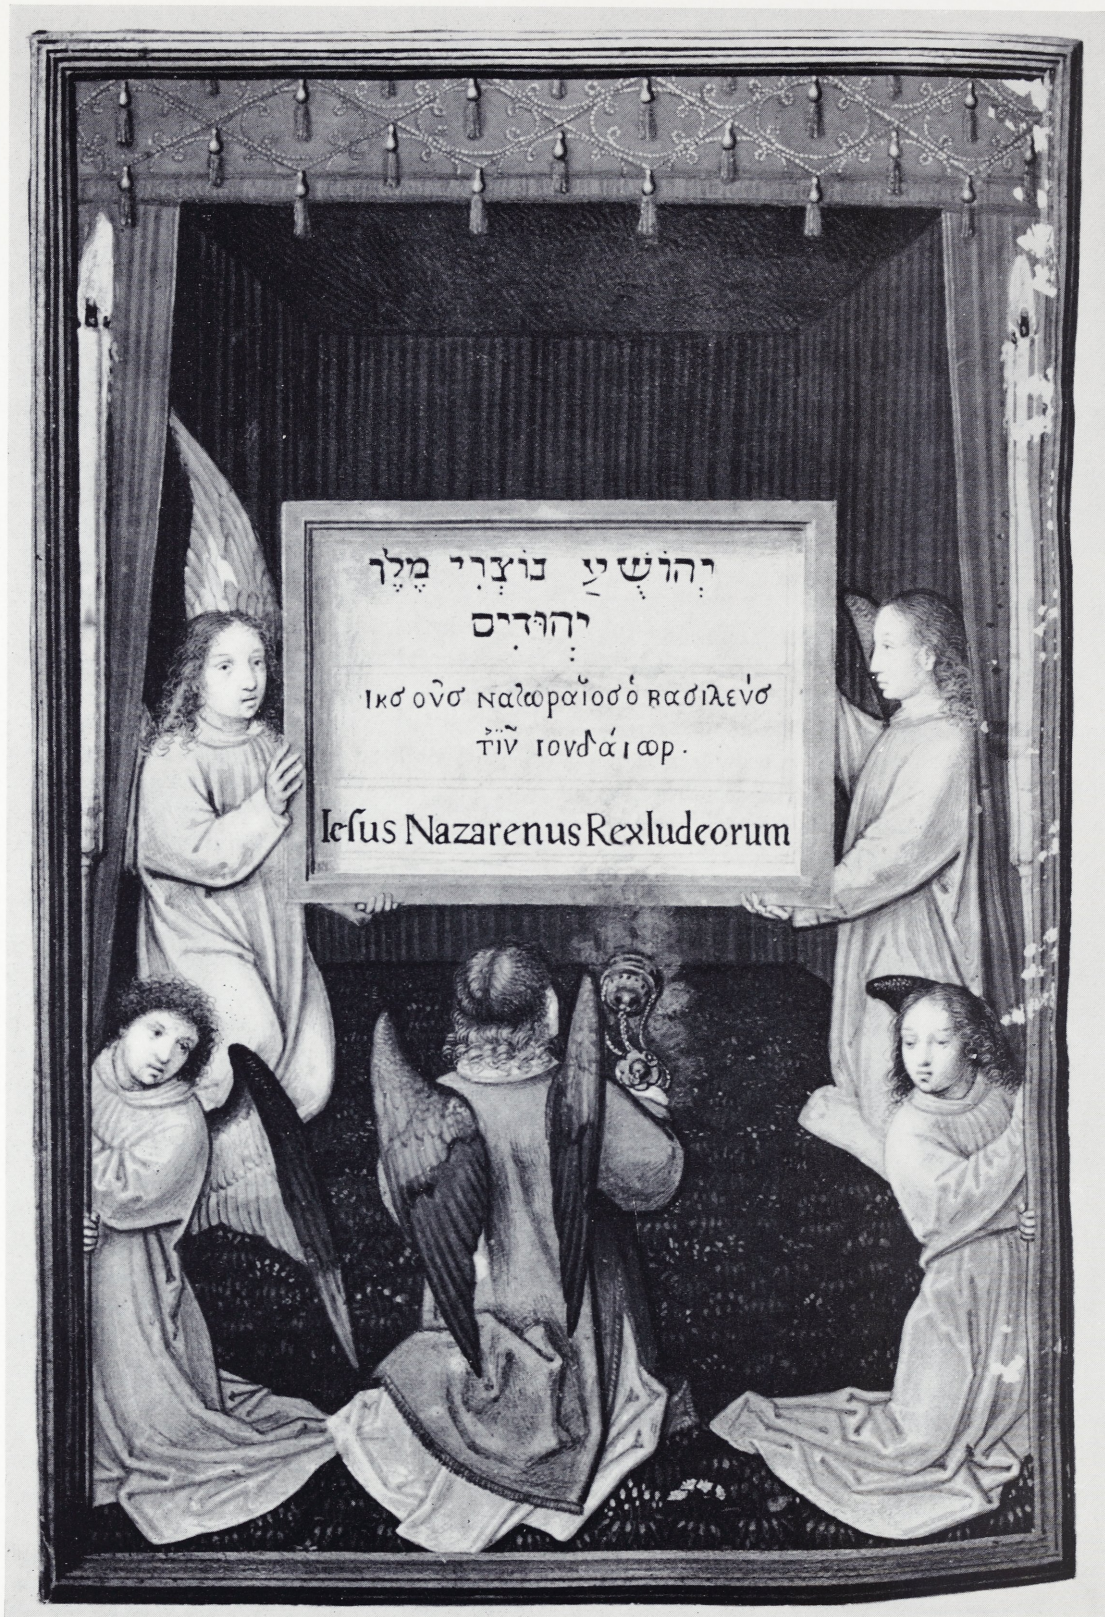 יְהוֹשֻׁיעַ נוֹצְרִי מֶלֶך
יְהוּדִים
ιησ ουσ ναζωραῖοσ ὁ βασιλεύσ
τῶν ιουδάιωρ.
Iesus Nazarenus Rex Iudeorum